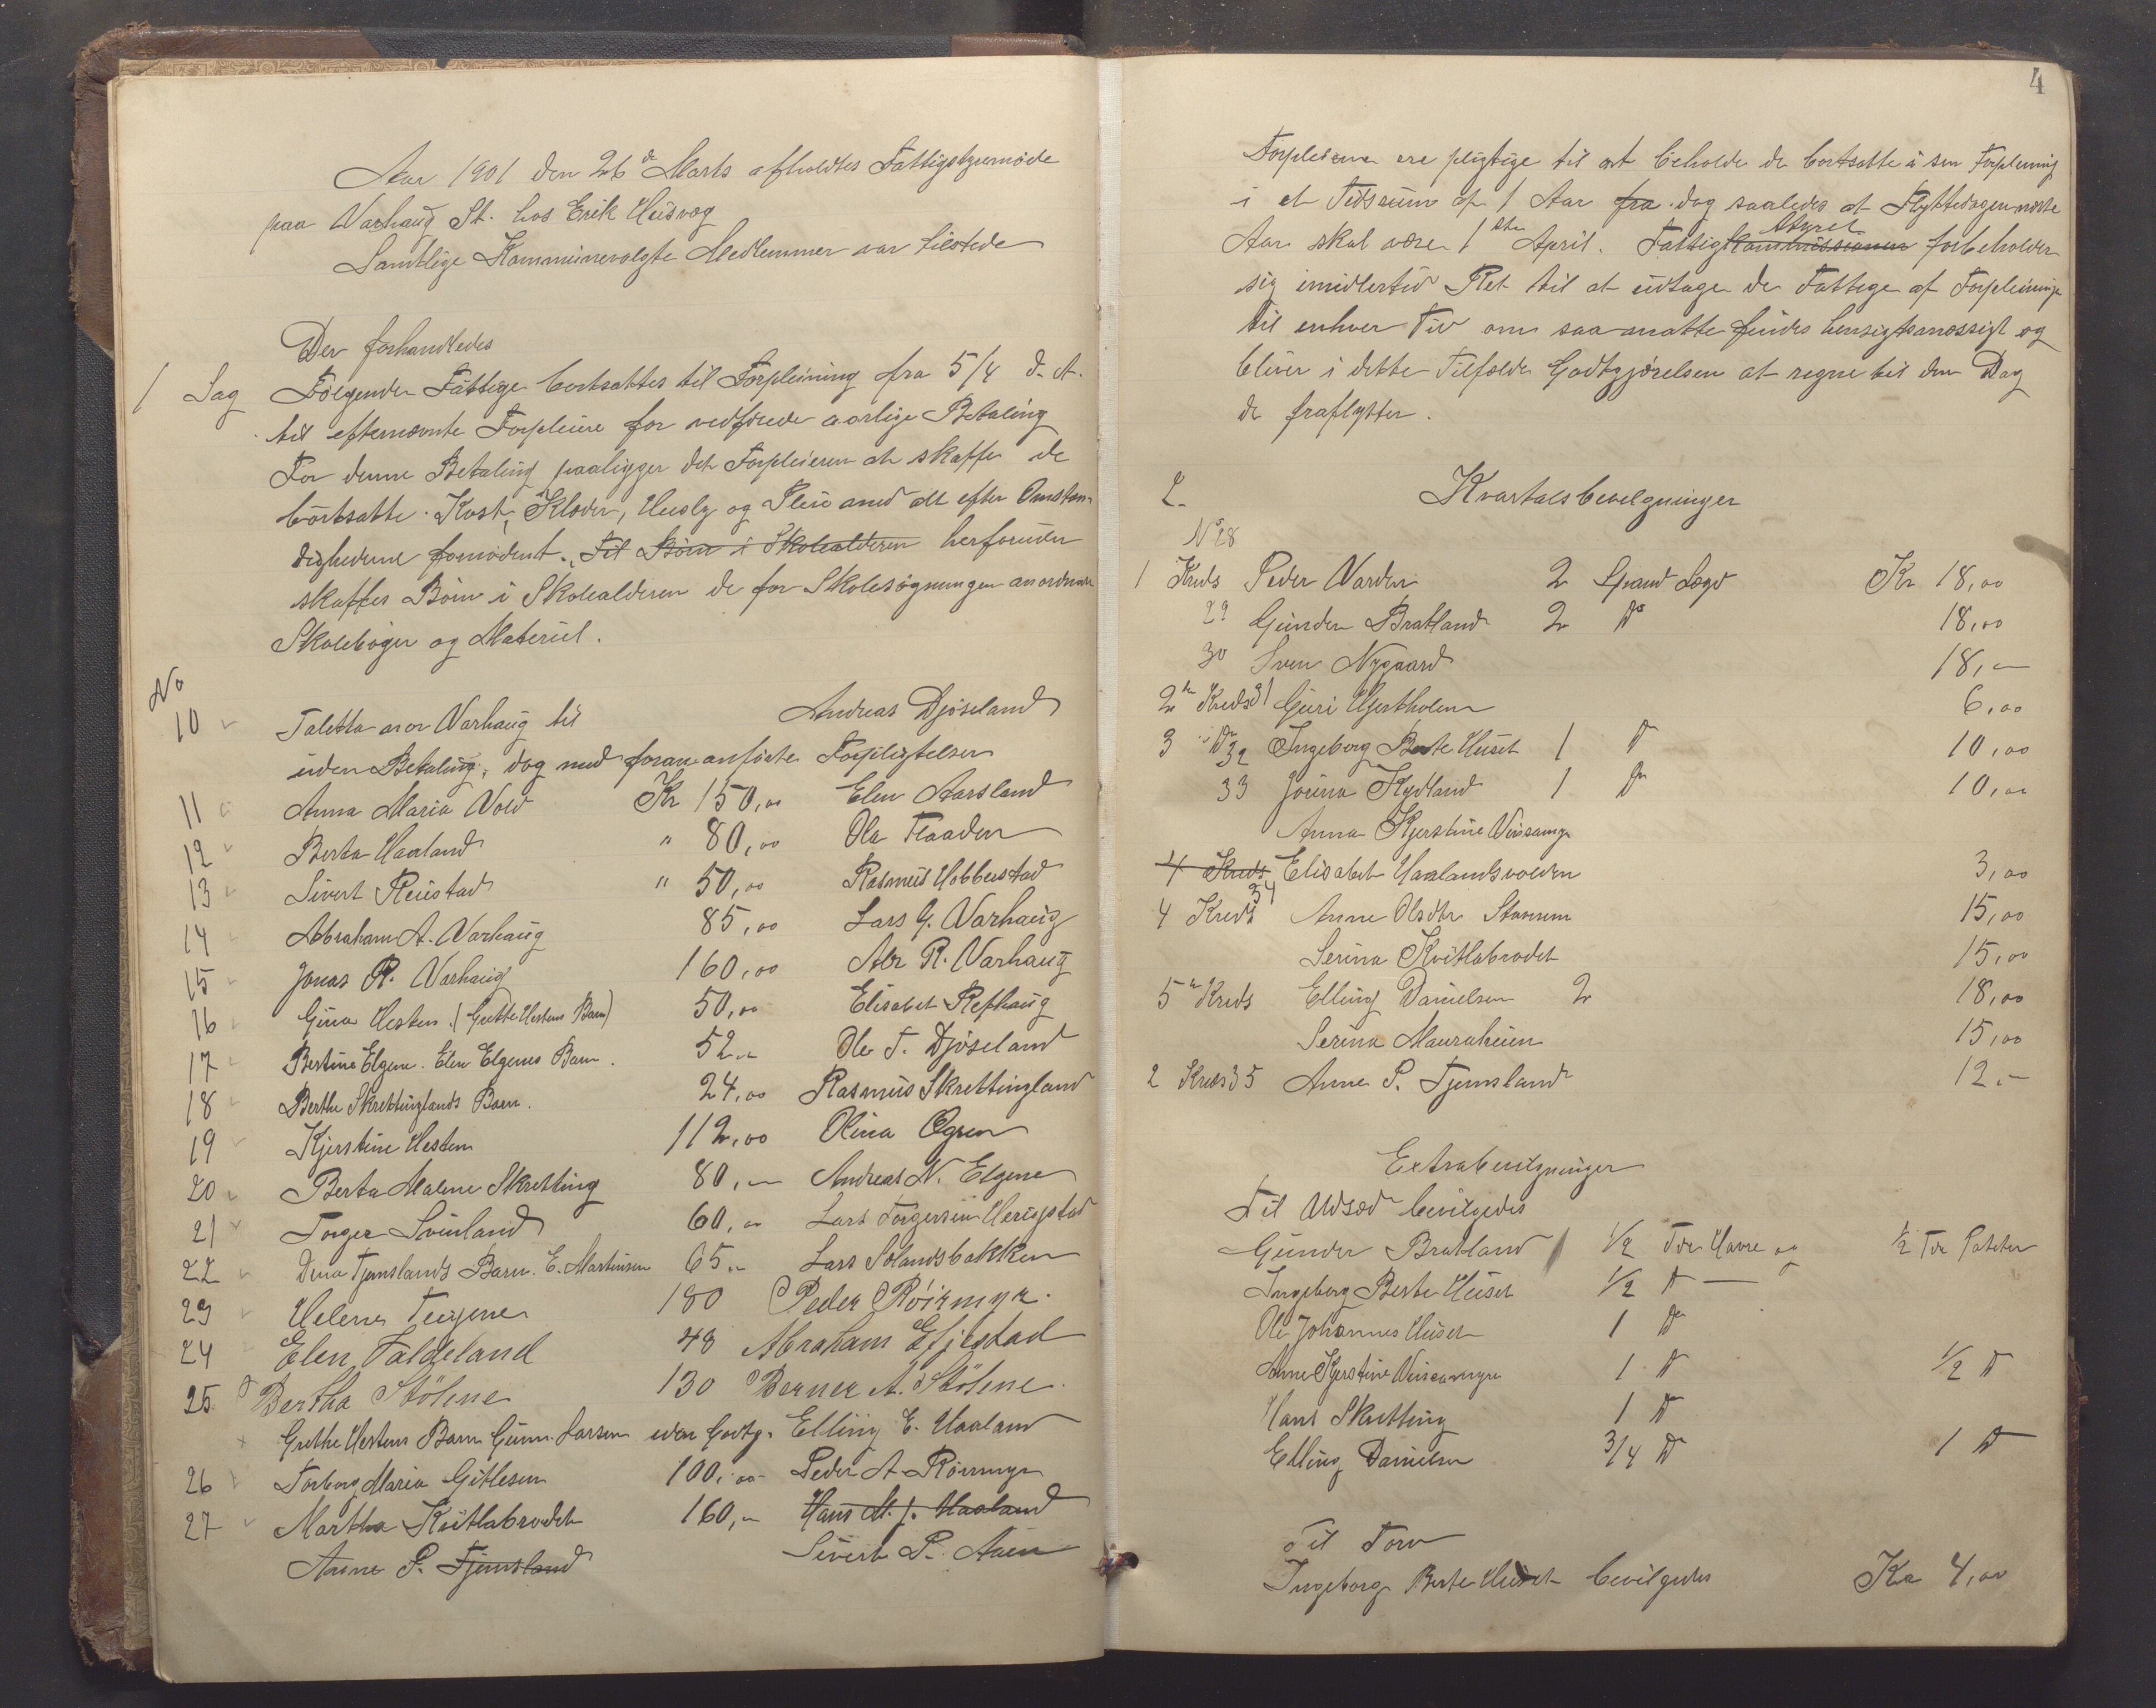 Aar 1901 den 26de Marts afholdtes Fattigstyremøde
paa Varhaug St. hos Erik Husvæg
Samtlige Kommunevalgte Medlemmer var tilstede
Der forhandledes
1 Sag Følgende Fattige bortsattes til Forpleining fra 5/4 d. A.
til efternævnte Forpleiere for vedføiede aarlige Betaling
For denne Betaling paaligger det Forpleieren at skaffe de
bortsatte Kost, Klæder, Husly og Pleie med alt efter Omstæn-
dighederne fornødent. Til Børn i Skolealderen herforuden
skaffes Børn i Skolealderen de for Skolesøgningen anordnede
Skolebøger og Materiel.
No
10 Taletta Varhaug til Andreas Djøseland
uden Betaling, dog med foran anførte Forpligtelser
11 Anna Maria Vold Kr 150,00 Elen Aarsland
12 Berta Haaland " 80,00 Ola Flaaden
13 Sivert Reiestad " 50,00 Rasmus Hobberstad
14 Abraham A. Varhaug 85,00 Lars G. Varhaug
15 Jonas R. Varhaug 160,00 Abr R. Varhaug
16 Gina Hesten (Grethe Hestens Barn) 50,00 Elisabet Refhaug
17 Bertine Elgene. Elen Elgenes Barn. 52,- Ole T. Djøseland
18 Berthe Skrettinglands Barn. 24,00 Rasmus Skrettingland
19 Kjerstine Hesten 112,00 Olina Øgren
20 Berta Malene Skretting 80,- Andreas N. Elgene
21 Torger Svinland 60,00 Lars Torgersen Herigstad
22 Dina Tjemslands Barn. E. Martinsen 65,- Lars Sølandsbakken
23 Helene Teigene 180 Peder Röirmyr.
24 Elen Faldeland 48 Abraham Efjestad
25 Bertha Stölene 130 Berner A. Stölene.
Grethe Hestens Barn Gunn. Larsen uden Godtg. Elling E. Haaland
26 Torborg Maria Gitlesen 100,00 Peder A. Rörmyr
27 Martha Kvitlabrodet 160,- Hans M. J. Haaland
Anne P. Tjemsland Sivert P. Auen
4
Forpleierne ere pligtige til at beholde de bortsatte i sin Forpleining
i et Tidsrum af 1 Aar fra dag saaledes at Flyttedagen næste
Styret
Aar skal være 1ste April. Fattigkommissionen forbeholder
sig imidlertid Ret til at udtage de Fattige af Forpleininge
til enhver Tid om saa maatte findes hensigtsmæssigt og
bliver i dette Tilfælde Godtgjørelsen at regne til den Dag
de fraflytter.
2. Kvartalsbevilgninger
No 28
1 Kreds Peder Varden 2 Spand Lægd Kr 18,00
29 Gunder Bratland 2 Do 18,00
30 Sven Nygaard 18,-
2den Kreds 31 Guri Hjertholen 6,00
3 Do 32 Ingeborg Berte Huset 1 Do 10,00
33 Jorina Kydland 1 Do 10,00
Anna Kjerstine Vinsamyr
4 Kreds Elisabet Haalandsvolden 3,00
4 Kreds 34 Anne Olsdtr Stavrem 15,00
Serina Kvitlabrodet 15,00
5te Kreds Elling Danielsen 2 18,00
Serina Mauraheien 15,00
2 Kreds 35 Anne P. Tjemsland 12.-
Extrabevilgninger
Til Udsæd bevilgedes
Gunder Bratland 1/2 Tde Havre og 1/2 Tde Poteter
Ingeborg Berte Huset 1/2 Do —
Ole Johannes Huset 1 Do
Anne Kjerstine Vinsamyr 1 Do 1/2 Do
Hans Skretting 1 Do
Elling Danielsen 3/4 Do 1 Do
Til Torv
Ingeborg Berte Huset bevilgedes Kr 4,00